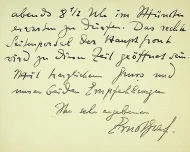 abends 8½ Uhr im Münster
erwarten zu dürfen. Das rechte
Seitenportal der Hauptfront
wird zu dieser Zeit geöffnet sein.
Mit herzlichem Gruss und
unser beider Empfehlungen
Ihr sehr ergebener
Ernst Graf.